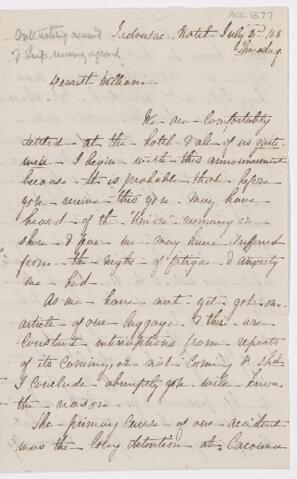 ACC 1877
Interesting account
of Ship running aground
Tadousac Hotel July 2nd /68
Thursday
Dearest William
We are Comfortably
settled at the hotel & all of us quite
well - I begin with this announcement
because it is probable that before
you receive this you may have
heard of the "Union" running on
shore & fear we may have suffered
from the night of fatigue & anxiety
we had.
As we have not yet got one
article of our luggage & there are
constant interruptions from reports
of its coming or not coming &
I conclude abruptly you will know
the reason.
The primary cause of our accident
was the long detention at Cacouna